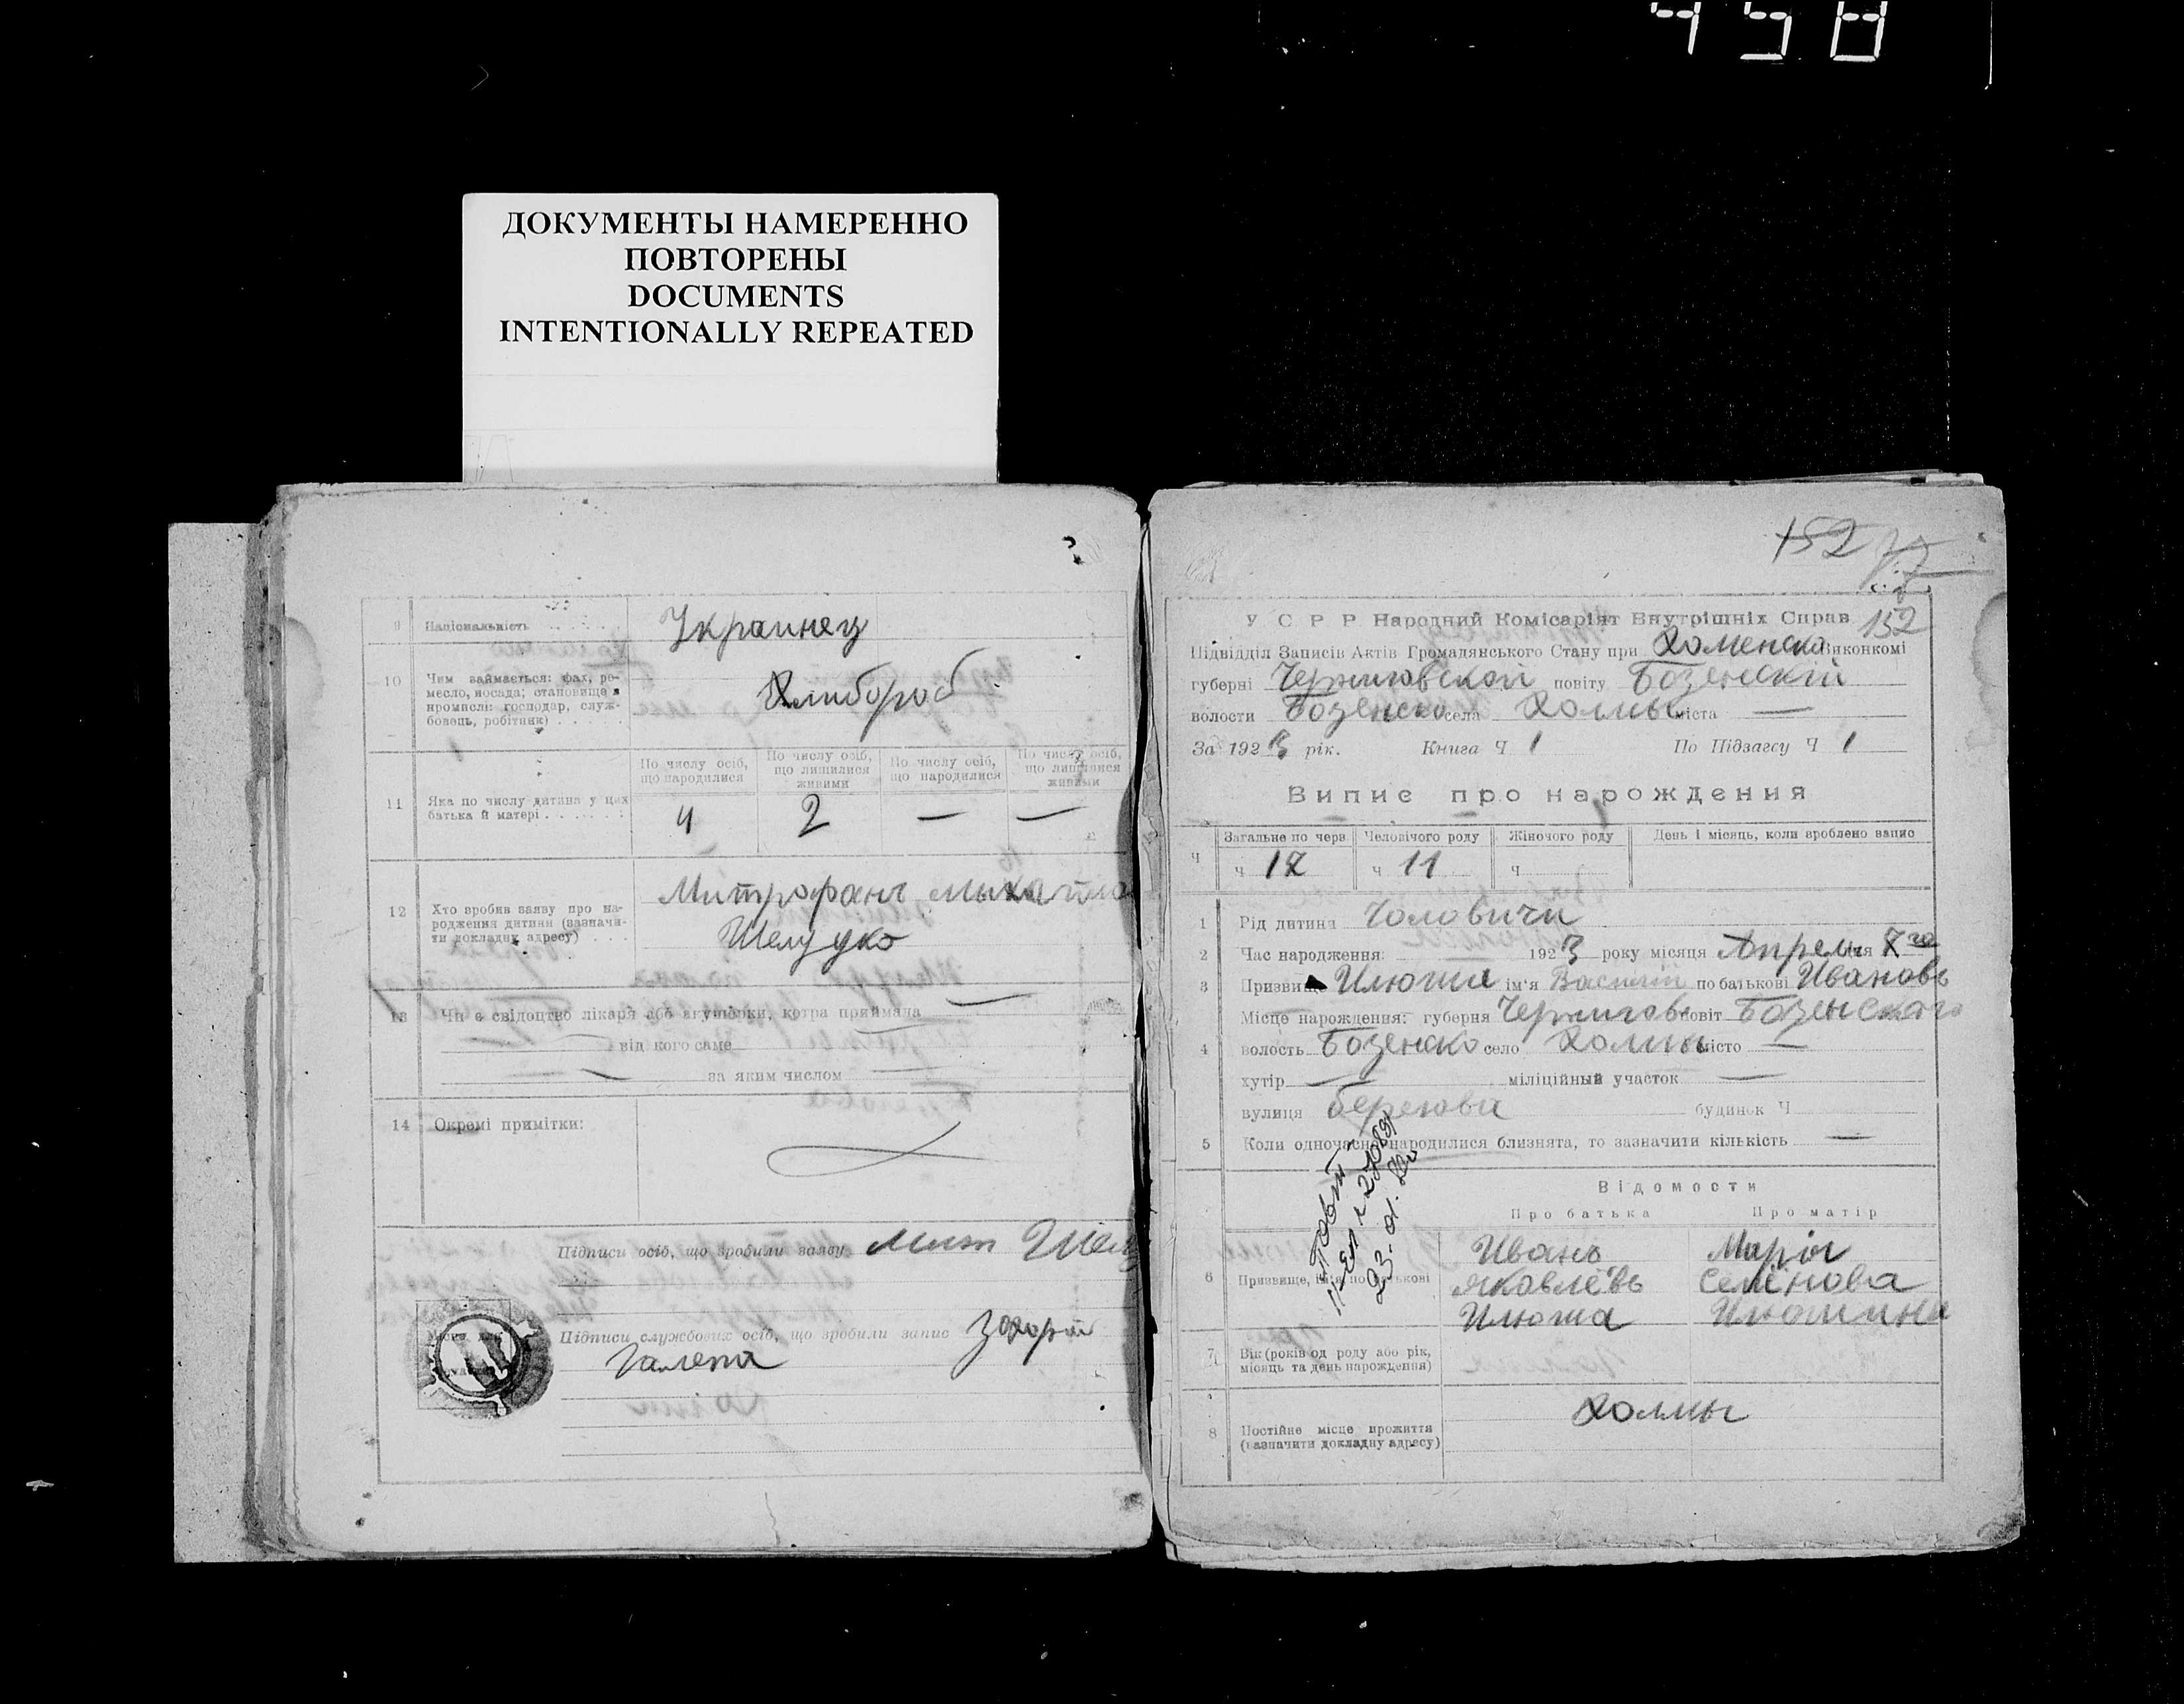 458
ДОКУМЕНТЫ НАМЕРЕННО
ПОВТОРЕНЫ
DOCUMENTS
INTENTIONALLY REPEATED
9 Національність Украинец
10 Чим займається: фах, ре-
месло, посада; становище в
промислі: господар, служ-
бовець, робітник) Хлибороб
По числу осіб, що народилися
По числу осіб, що лишилися живими
По числу осіб, що народилися
По числу осіб, що лишилися живими
11 Яка по числу дитина у цих
батька й матері 4 2 — —
12 Хто зробив заяву про на-
родження дитини (зазначи-
ти докладну адресу) Митрофанъ
Шелудко
13 Чи є свідоцтво лікаря або акушорки, котра приймала —
від кого саме
за яким числом
14 Окремі примітки:
Підписи осіб, що зробили заяву
Підписи службових осіб, що зробили запис
152
152
У С Р Р Народний Комісаріят Внутрішніх Справ
Підвідділ Записів Актів Громадянського Стану при Хоменско Виконкомі
губерні Черниговской повіту
волости села Холмы міста —
За 1923 рік. Книга Ч 1 По Підзагсу Ч 1
Випис про нарождення
Загальне по черв Человічого роду Жіночого роду День і місяць, коли вроблено запис
Ч ч ч 11 ч
1 Рід дитини Чоловичи
2 Час народження: 1923 року місяця Апреля дня
3 Призвище Илюша ім'я Василій по батькові Ивановъ
Місце нарождения: губерня Чернигов повіт
4 волость село Холмы місто —
хутір — міліційный участок —
вулиця будинок Ч
5 Коли одночасно народилися близнята, то зазначити кількість —
Відомости
Про батька Про матір
6 Призвище, ім'я по батькові
Иванъ Марія
Яковлевъ Семёнова
Илюша Илюшина
7 Вік (років од роду або рік,
місяць та день нарождения)
8 Постійне місце прожиття
(зазначити докладну адресу) Холмы